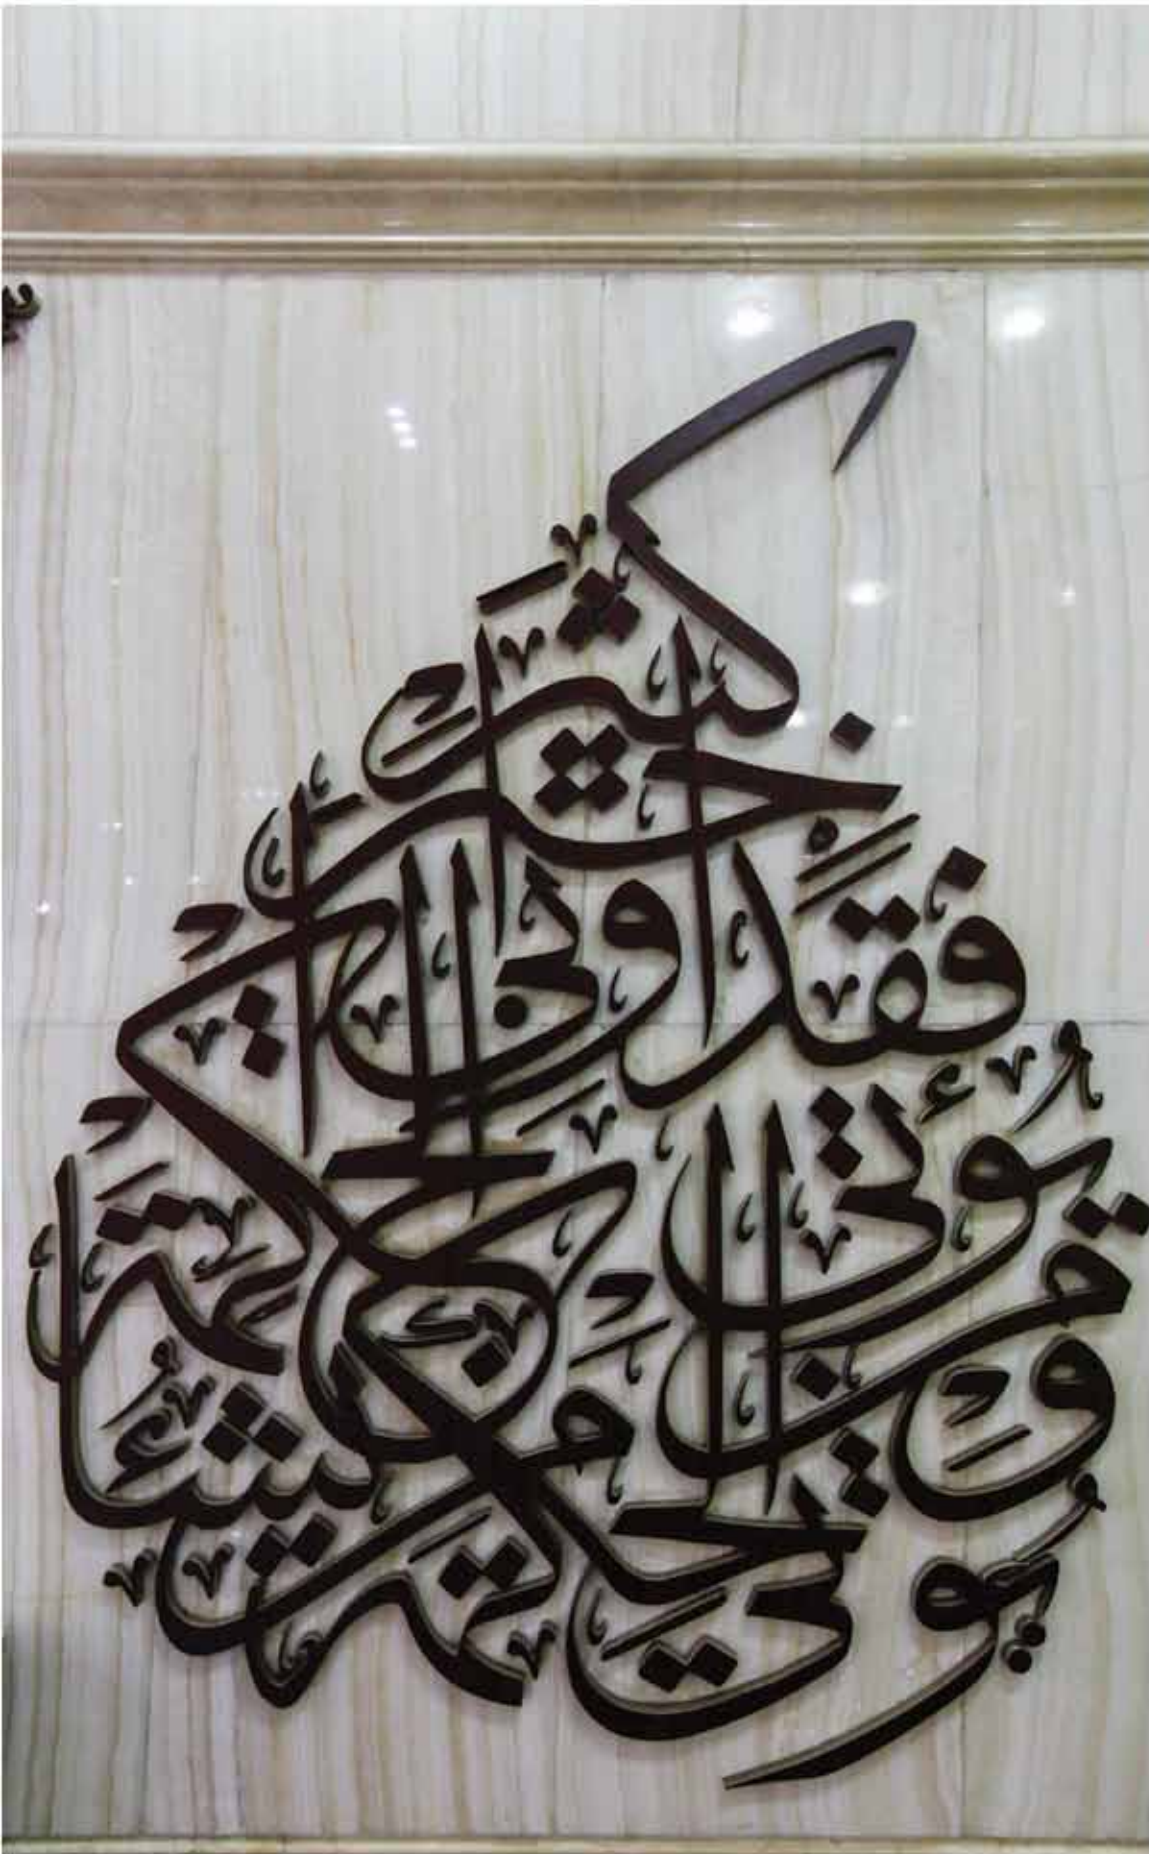 يُؤْتِي الْحِكْمَةَ مَنْ يَشَاءُ
وَمَنْ يُؤْتَ الْحِكْمَةَ
فَقَدْ أُوتِيَ
خَيْرًا
كَثِيرًا